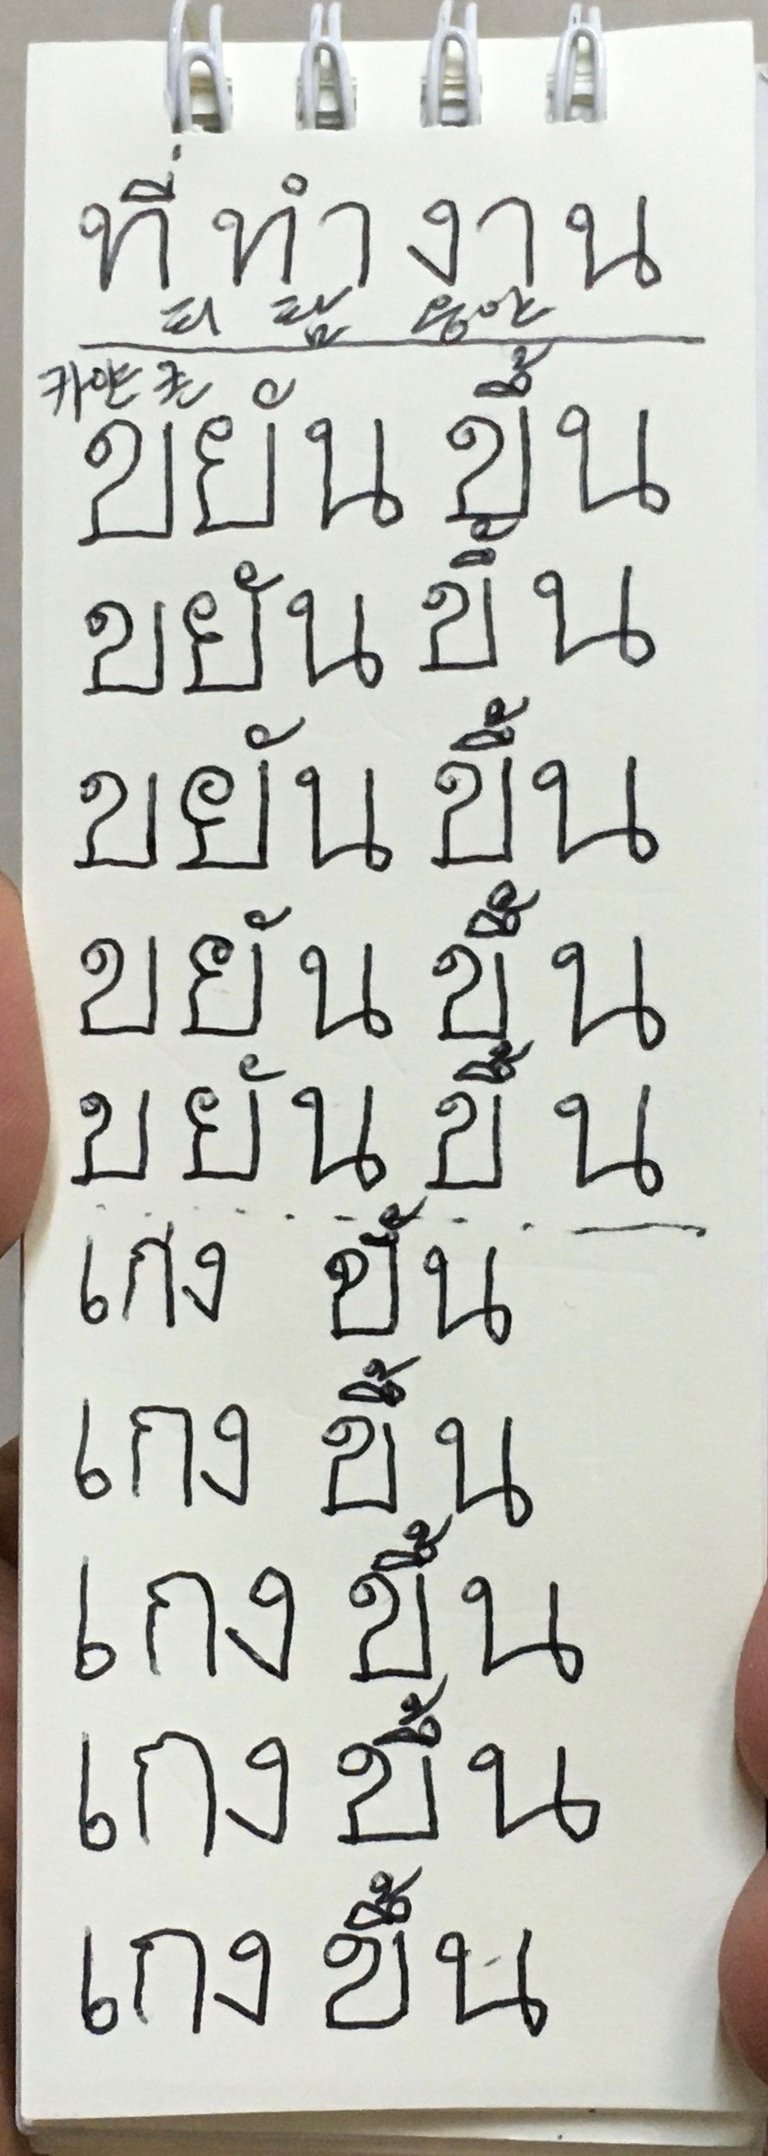 ที่ทำงาน
티 탐 응안
카얀 큰
ขยัน ขึ้น
ขยัน ขึ้น
ขยัน ขึ้น
ขยัน ขึ้น
ขยัน ขึ้น
เกง ขึ้น
เกง ขึ้น
เกง ขึ้น
เกง ขึ้น
เกง ขึ้น